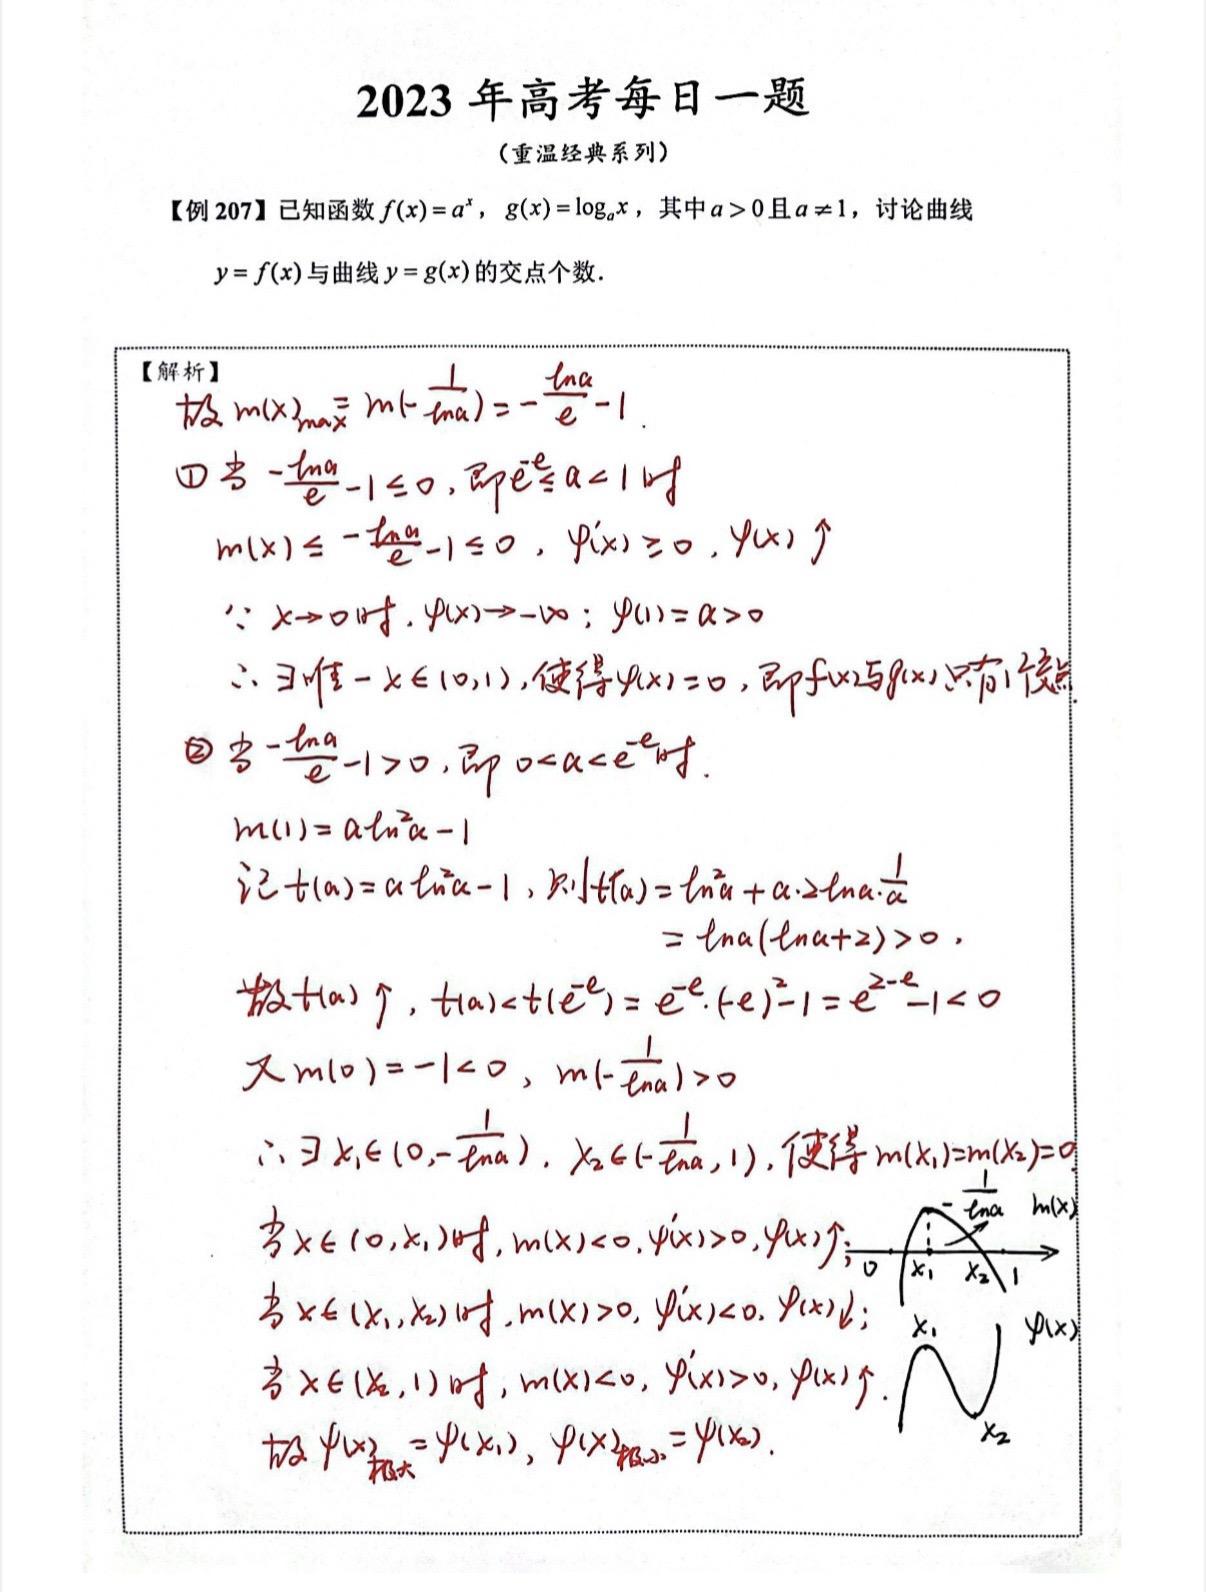 2023 年高考每日一题
（重温经典系列）
【例 207】已知函数 f(x)=aˣ，g(x)=logₐx，其中 a>0 且 a≠1，讨论曲线
y=f(x) 与曲线 y=g(x) 的交点个数.
【解析】
故 m(x)max = m(-1/lna) = -lna/e - 1.
① 当 -lna/e - 1 ≤ 0, 即 e^(-e) ≤ a < 1 时
m(x) ≤ -lna/e - 1 ≤ 0, φ'(x) ≥ 0, φ(x)↑
∵ x→0时, φ(x)→-∞; φ(1)=a>0
∴ ∃唯一 x∈(0,1), 使得 φ(x)=0, 即 f(x)与g(x)只有1个交点.
② 当 -lna/e - 1 > 0, 即 0<a<e^(-e) 时.
m(1) = aln²a - 1
记 t(a) = aln²a - 1, 则 t'(a) = ln²a + a·2lna·1/a
= lna(lna+2) > 0.
故 t(a)↑, t(a) < t(e^(-e)) = e^(-e)·(-e)² - 1 = e^(2-e) - 1 < 0
又 m(0) = -1 < 0, m(-1/lna) > 0
∴ ∃ x₁∈(0, -1/lna), x₂∈(-1/lna, 1), 使得 m(x₁)=m(x₂)=0
当 x∈(0, x₁)时, m(x)<0, φ'(x)>0, φ(x)↑;
当 x∈(x₁, x₂)时, m(x)>0, φ'(x)<0, φ(x)↓;
当 x∈(x₂, 1)时, m(x)<0, φ'(x)>0, φ(x)↑.
故 φ(x)极大 = φ(x₁), φ(x)极小 = φ(x₂).
-1/lna m(x)
0 x₁ x₂ 1
x₁ φ(x)
x₂